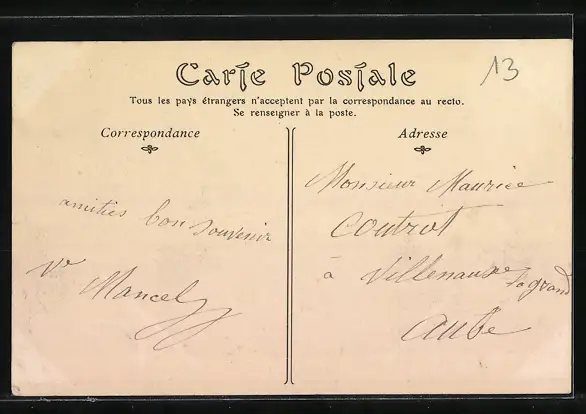 13
Carte Postale
Tous les pays étrangers n'acceptent par la correspondance au recto.
Se renseigner à la poste.
Correspondance
Adresse
amitiés bon souvenir
Ve Mancel
Monsieur Maurice
Coutrot
à Villenauxe
la grand
Aube